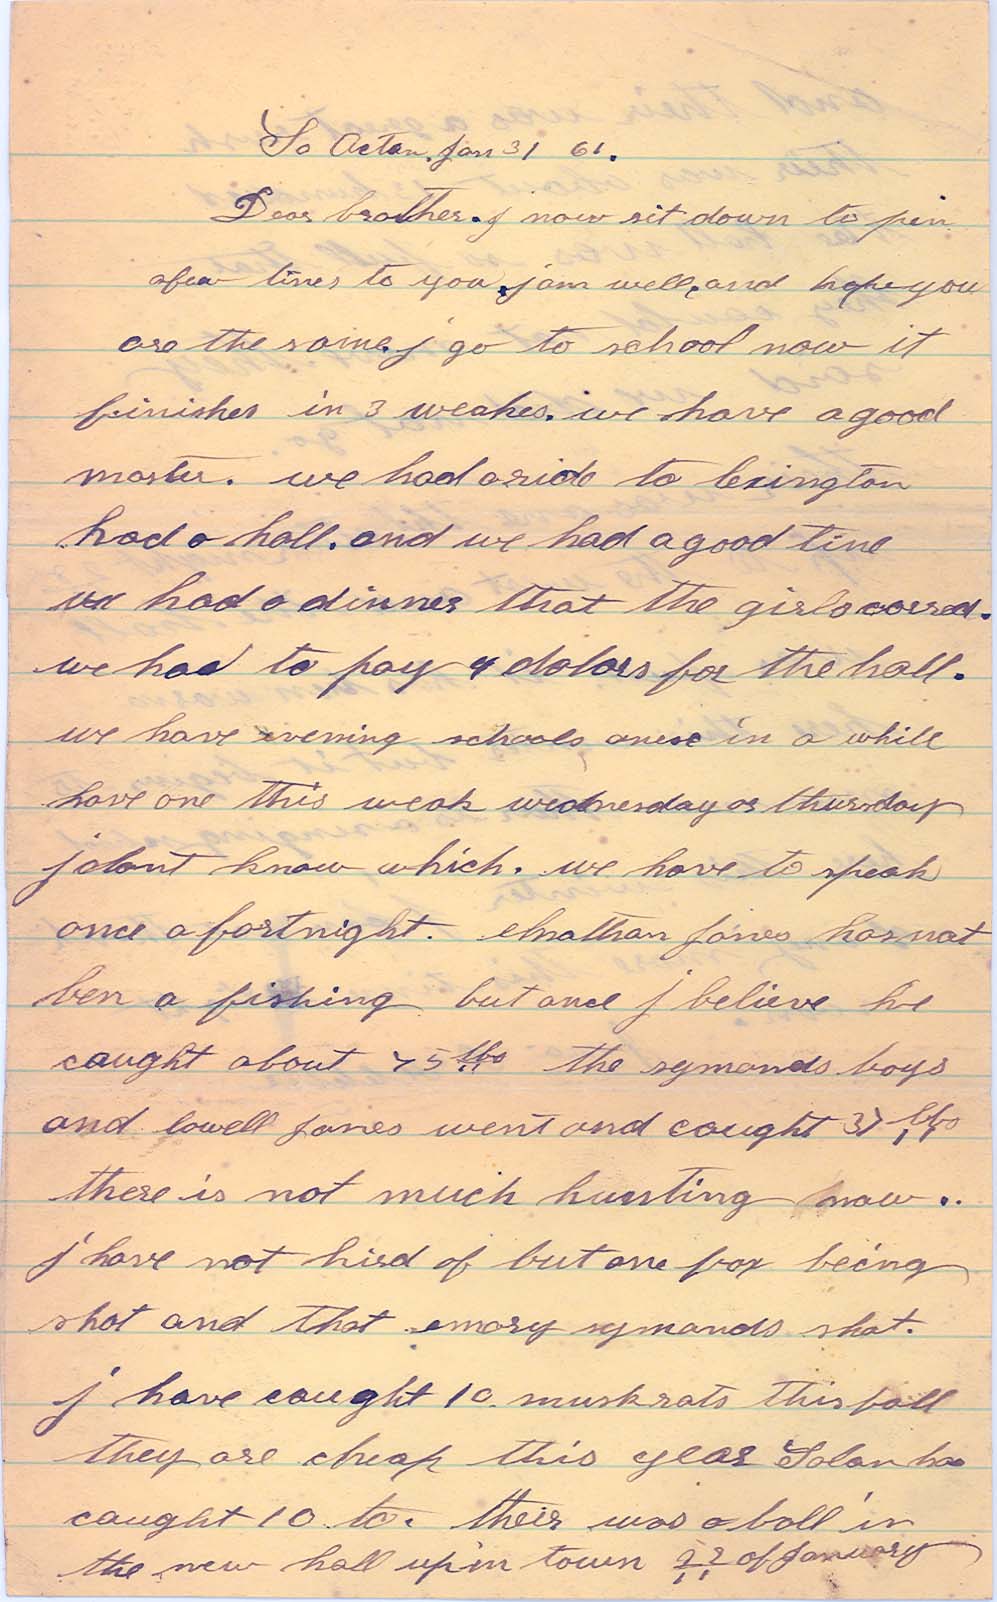 So Acton. Jan 31 61.
Dear brother. j now sit down to pin
afew lines to you, jam well, and hope you
are the same, j go to school now it
finishes in 3 weakes. we have a good
master. we had aride to lexington
had a hall. and we had a good tine
we had a dinner that the girls carred.
we had to pay 4 dolors for the hall.
we have evening schools, onese in a while
have one this weak wednesday or thursday
j dont know which. we have to speak
once a fortnight. elnathan jones has not
ben a fishing but once j believe he
caught about 75 lbs the symonds boys
and lowell jones went and caught 37 lbs
there is not much hunting now..
j have not hird of but one fox being
shot and that emory symonds shot.
j have caught 10. musk rats this fall
they are cheap this year Solon has
caught 10 to. their was a ball in
the new hall up in town 22 of january